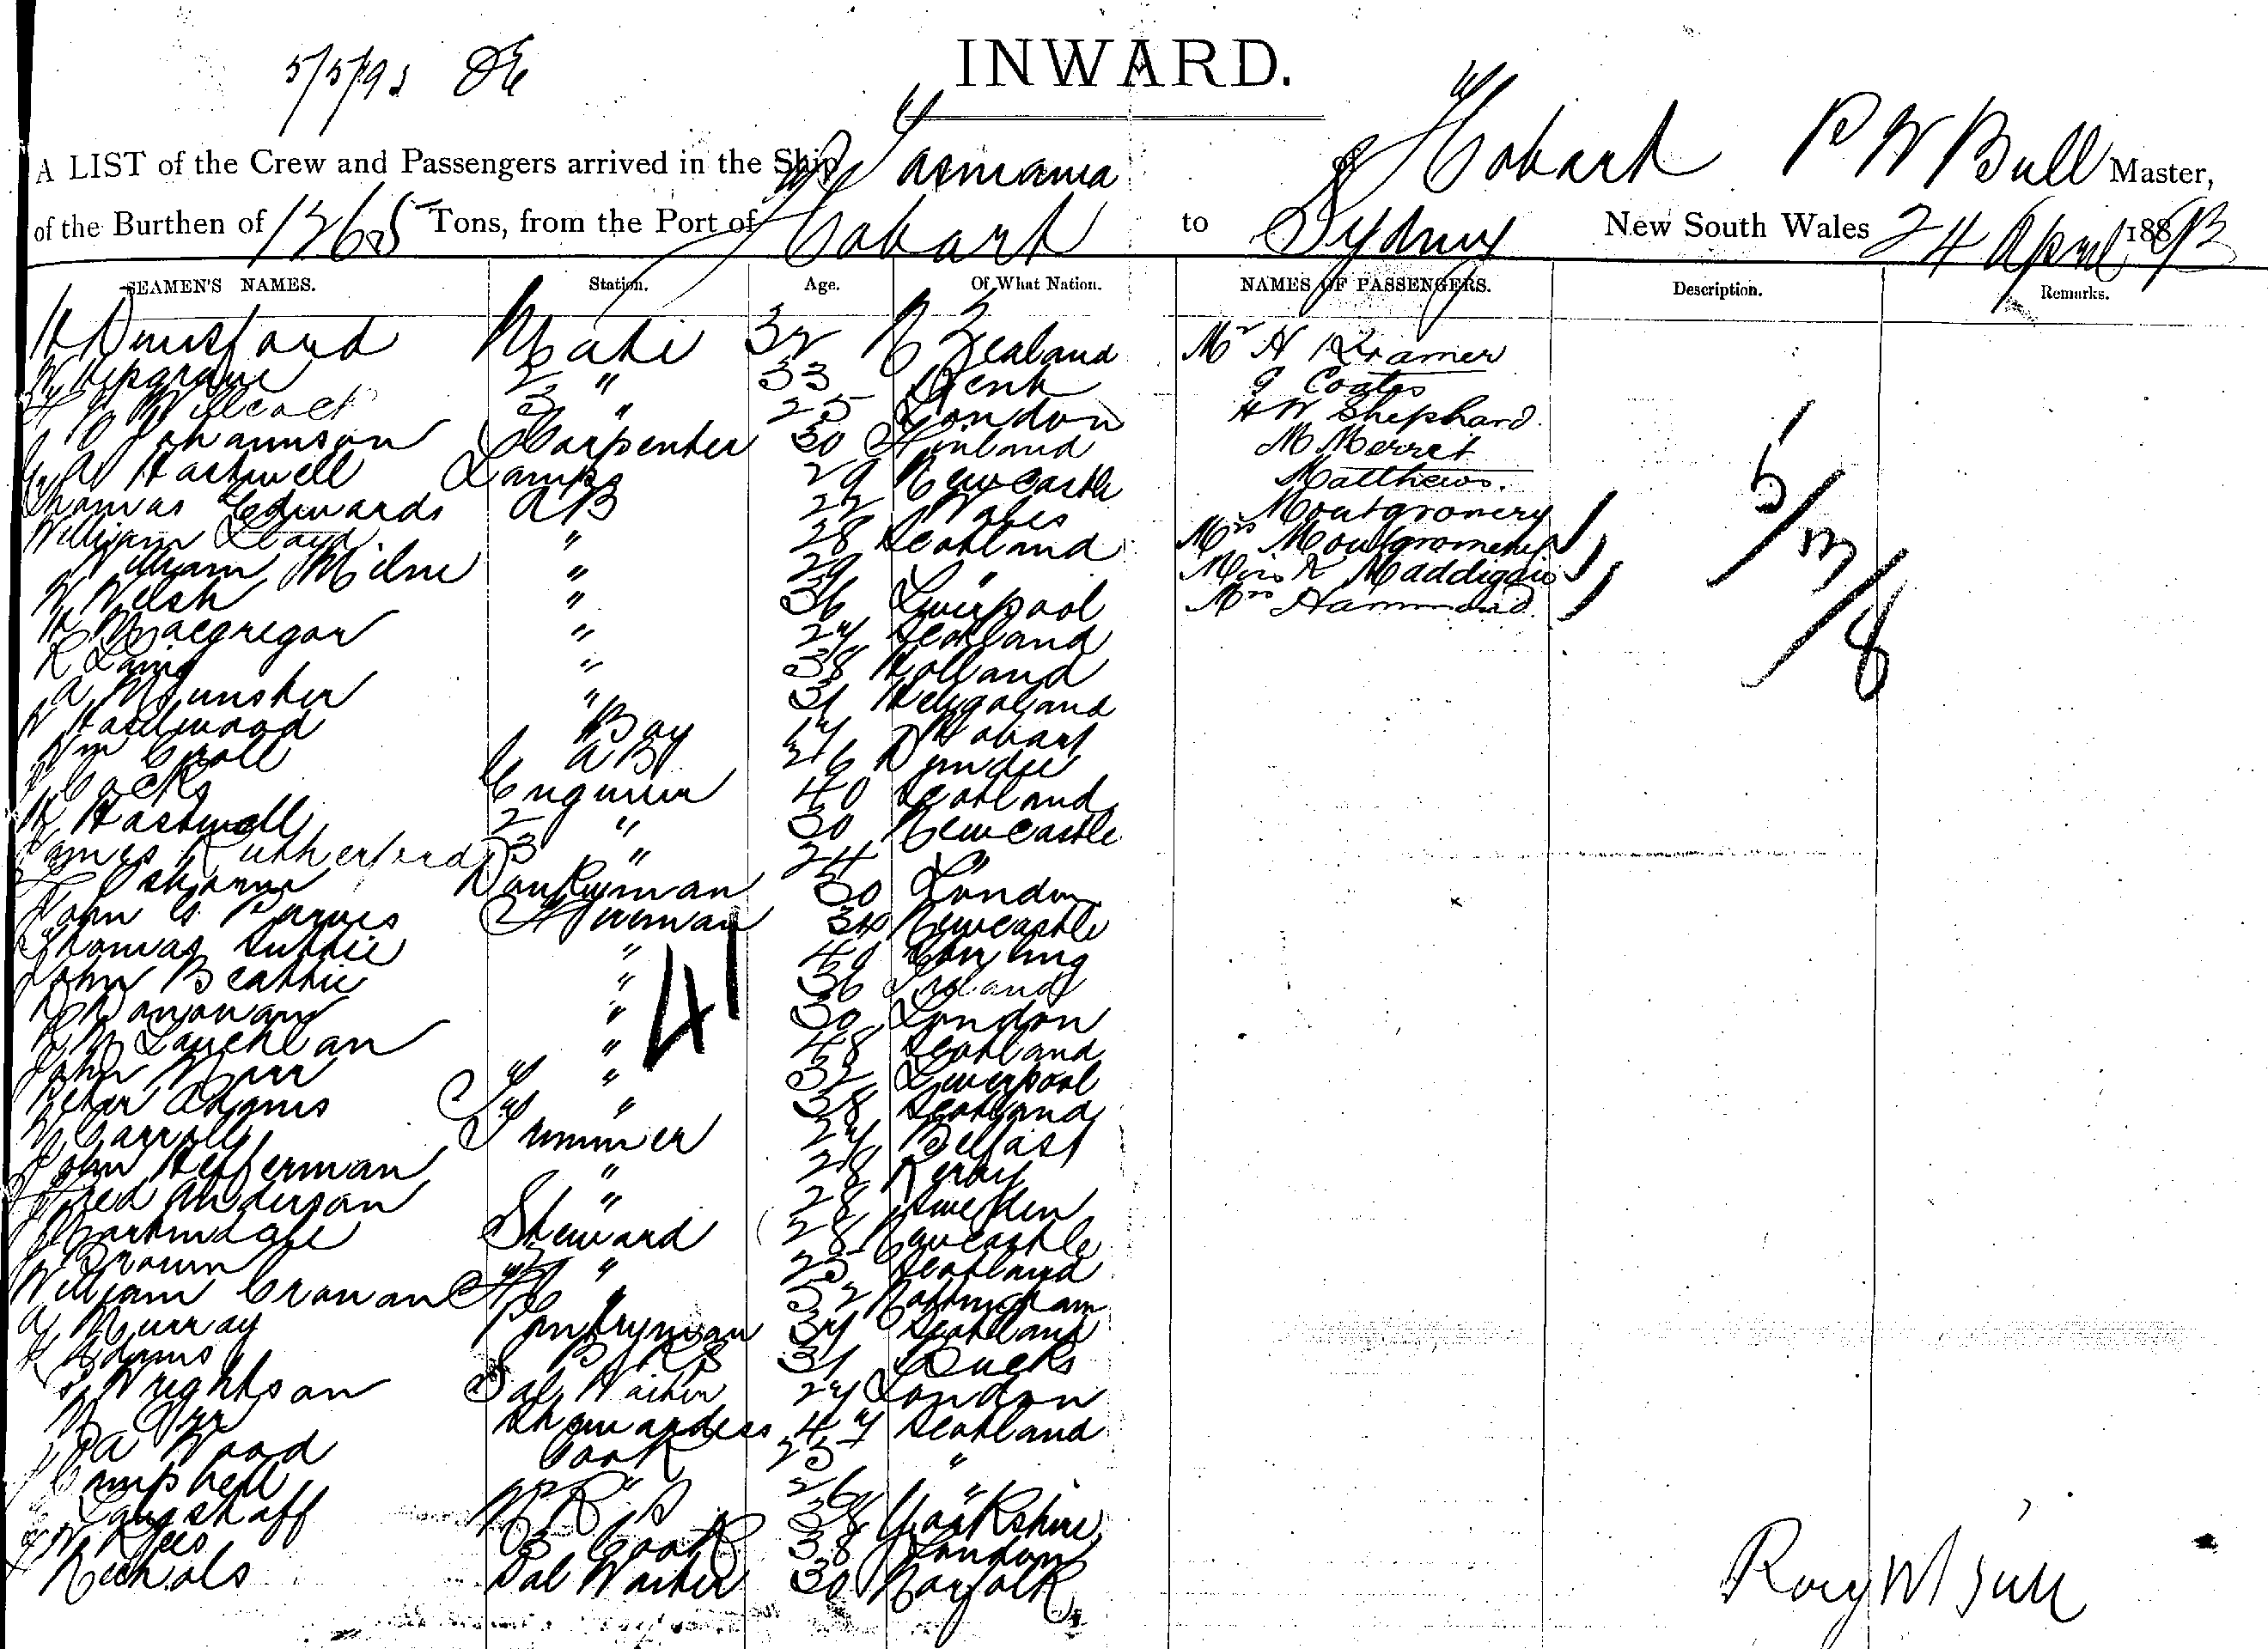 5/5/93
INWARD.
A LIST of the Crew and Passengers arrived in the Ship Tasmania of Hobart R W Bull Master,
of the Burthen of 1265 Tons, from the Port of Hobart to Sydney New South Wales 24 April 1893
SEAMEN'S NAMES. Station. Age. Of What Nation. NAMES OF PASSENGERS. Description. Remarks.
H Dunsford Mate 32 N Zealand Mr H Kramer
2 " 33 Kent G Coates
Willcock 3 " 25 London H W Shephard
Johannson Carpenter 30 Finland M Merret
G A Hastwell Lamps 29 Newcastle Matthews.
Thomas Edwards AB 22 Wales Montgromery
William Lloyd " 28 Scotland Mrs Montgromery
William Milne " 29 " Miss K Maddigan
W Welsh " 36 Liverpool Mrs Hammond
H Macgregor " 27 Scotland
R Laing " 38 Holland
A Munster " 31 Heligoland
W Haselwood Boy 17 Hobart
Wm Croll AB 26 Dundee
J Cocks Engineer 40 Scotland
H Hastwell 2 " 30 Newcastle
James Rutherford 3 " 24 "
F Osborne Donkeyman 30 London
John G Purves Fireman 34 Newcastle
Thomas Suttie " 40
John Beattie " 36 Ireland
D Donovan " 30 London
McLauchlan " 48 Scotland
John Kerr " 32 Liverpool
Peter Adams " 38 Scotland
W Carroll Trimmer 27 Belfast
John Heffernan " 28 Derby
Fred Anderson " 28 Sweden
J Martindale Steward 28 Newcastle
J Brown 2 " 25 Scotland
William Cranan " 52 Nottingham
A Murray Pantryman 37 Scotland
Adams 31 Bucks
Wrightson Sal Waiter 27 London
M Orr Stewardess 47 Scotland
A Wood Cook 25 "
Campbell 2 " 26 "
Langstaff 38 Yorkshire
W Rees 3 Cook 38 London
Nichols Sal Waiter 30 Norfolk
41
5/3/8
Roy W Bull